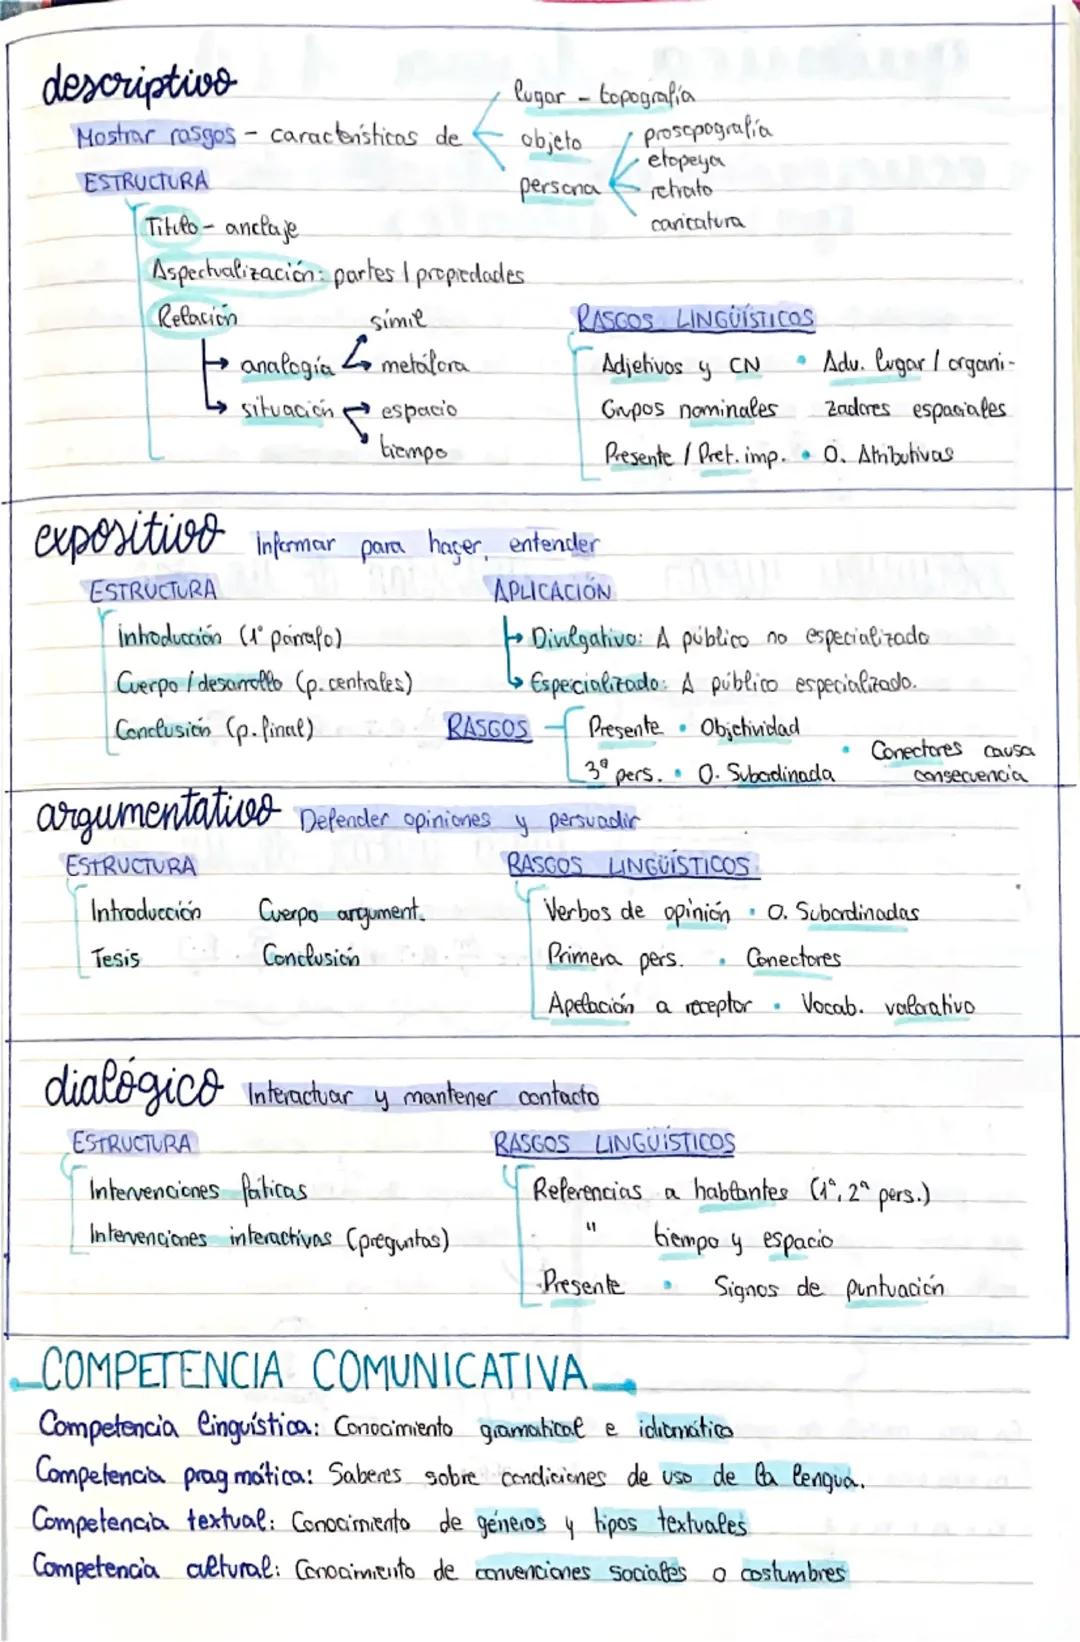 descriptivo
Mostrar rasgos - características de
lugar - topografía
objeto
persona
prosopografía
etopeya
retrato
caricatura
ESTRUCTURA
Título - anclaje
Aspectualización: partes / propiedades
Relación
analogía
símil
metáfora
situación
espacio
tiempo
RASGOS LINGÜÍSTICOS
Adjetivos y CN • Adv. lugar / organi-
Grupos nominales zadores espaciales
Presente / Pret. imp. • O. Atributivas
expositivo Informar para hacer entender
ESTRUCTURA
Introducción (1º párrafo)
Cuerpo / desarrollo (p. centrales)
Conclusión (p. final)
APLICACIÓN
Divulgativo: A público no especializado
Especializado: A público especializado.
RASGOS
Presente • Objetividad
3ª pers. • O. Subordinada
• Conectores causa
consecuencia
argumentativo Defender opiniones y persuadir
ESTRUCTURA
Introducción Cuerpo argument.
Tesis Conclusión
RASGOS LINGÜÍSTICOS
Verbos de opinión • O. Subordinadas
Primera pers. • Conectores
Apelación a receptor • Vocab. valorativo
dialógico Interactuar y mantener contacto
ESTRUCTURA
Intervenciones fáticas
Intervenciones interactivas (preguntas)
RASGOS LINGÜÍSTICOS
Referencias a hablantes (1ª, 2ª pers.)
" tiempo y espacio
Presente • Signos de puntuación
COMPETENCIA COMUNICATIVA
Competencia lingüística: Conocimiento gramatical e idiomático
Competencia pragmática: Saberes sobre condiciones de uso de la lengua.
Competencia textual: Conocimiento de géneros y tipos textuales
Competencia cultural: Conocimiento de convenciones sociales o costumbres